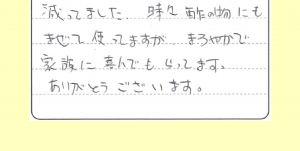 減ってました。時々酢の物にも
まぜて使ってますが まろやかで
家族に喜んでもらってます。
ありがとうございます。